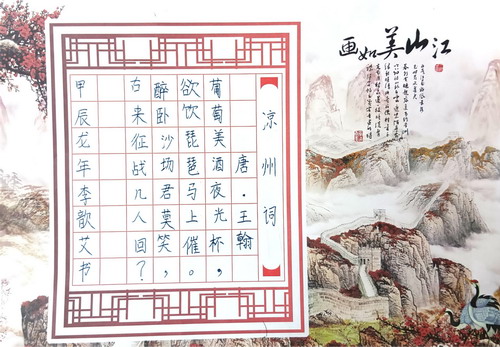 江山美如画
凉州词
唐·王翰
葡萄美酒夜光杯，
欲饮琵琶马上催。
醉卧沙场君莫笑，
古来征战几人回？
甲辰龙年李歆艾书